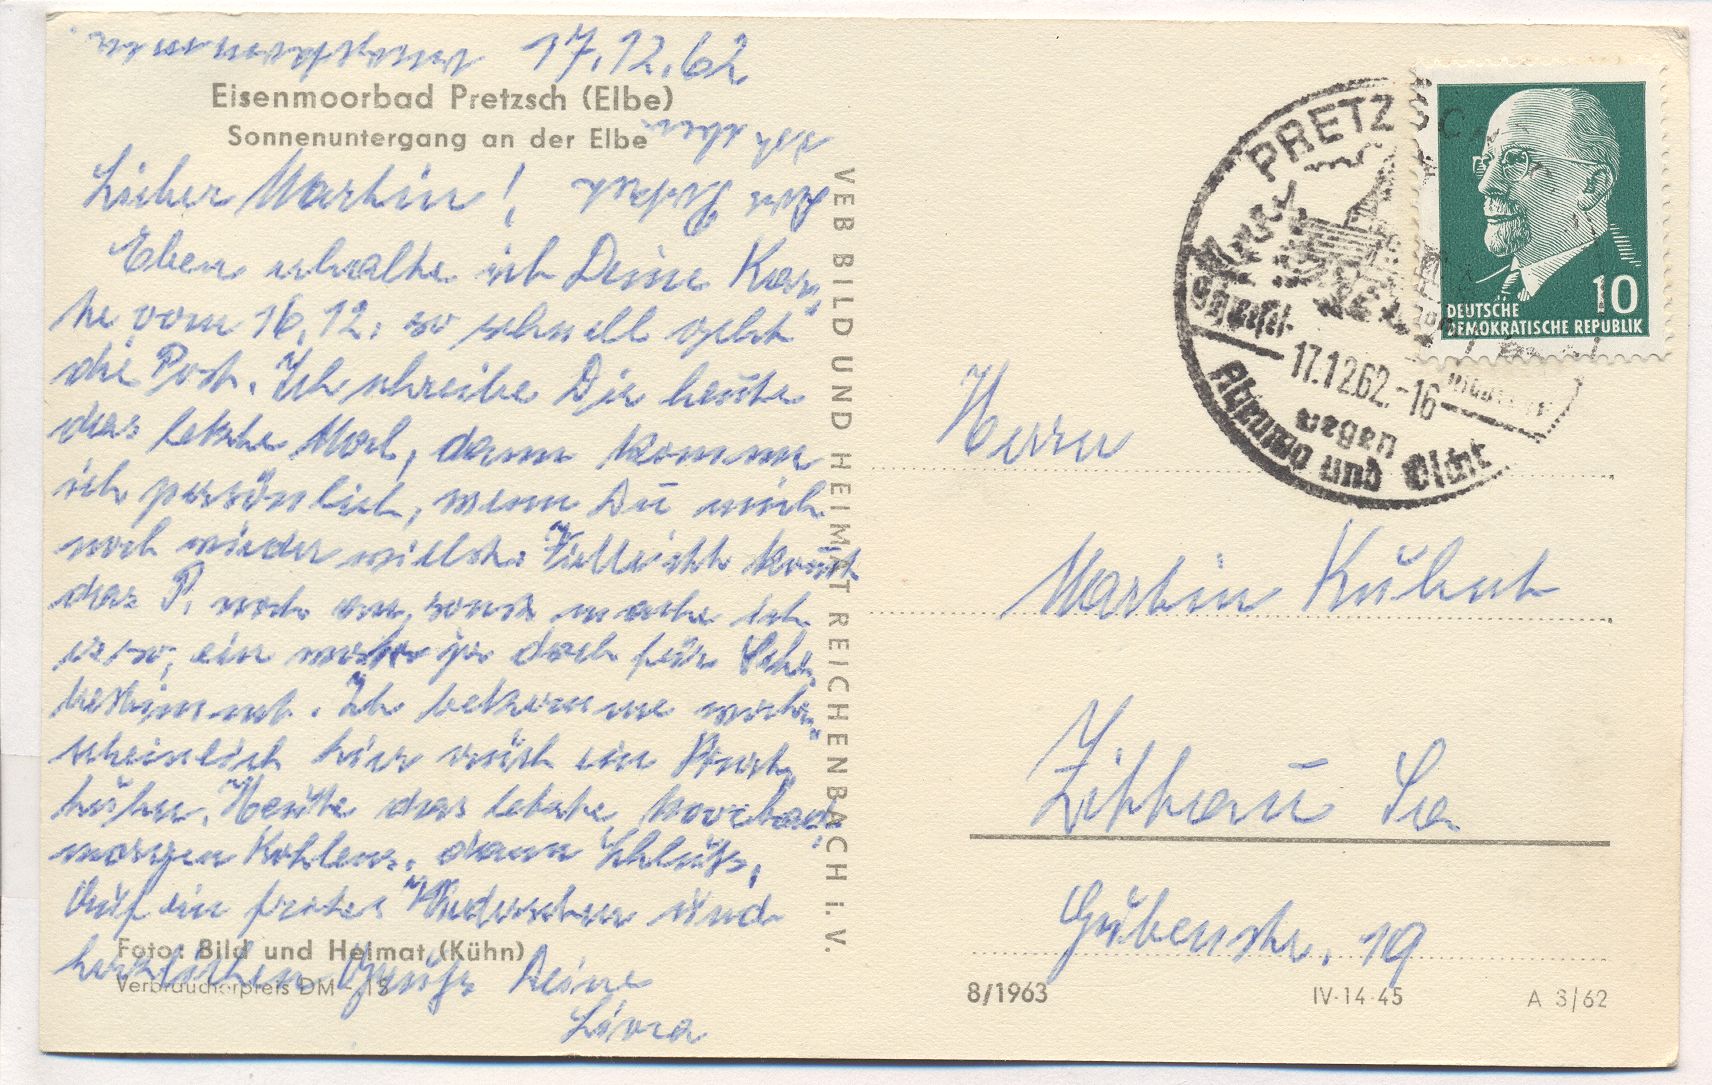 17.12.62
Eisenmoorbad Pretzsch (Elbe)
Sonnenuntergang an der Elbe
Lieber Martin!
Eben erhalte ich Deine Kar„
te vom 16.12. so schnell geht
die Post. Ich schreibe Dir heute
das letzte Mal, dann komme
ich persönlich, wenn Du mich
noch wieder willst. Vielleicht kommt
das P. noch an, sonst mache ich
es so, ein ja doch für
bestimmt. Ich bekomme wahr„
scheinlich hier auch ein
Heute das letzte Moorbad,
morgen Kohlens. dann Schluß.
Auf ein frohes Wiedersehen und
herzlichen Gruß Deine
Liora
Foto: Bild und Heimat (Kühn)
Verbraucherpreis DM -,15
VEB BILD UND HEIMAT REICHENBACH I. V.
PRETZSC
17.12.62.-16
gegen
Rheuma und Gicht
10
DEUTSCHE
DEMOKRATISCHE REPUBLIK
Herrn
Martin Kubut
Zittau Sa
Gubenstr. 19
8/1963
IV-14-45
A 3/62